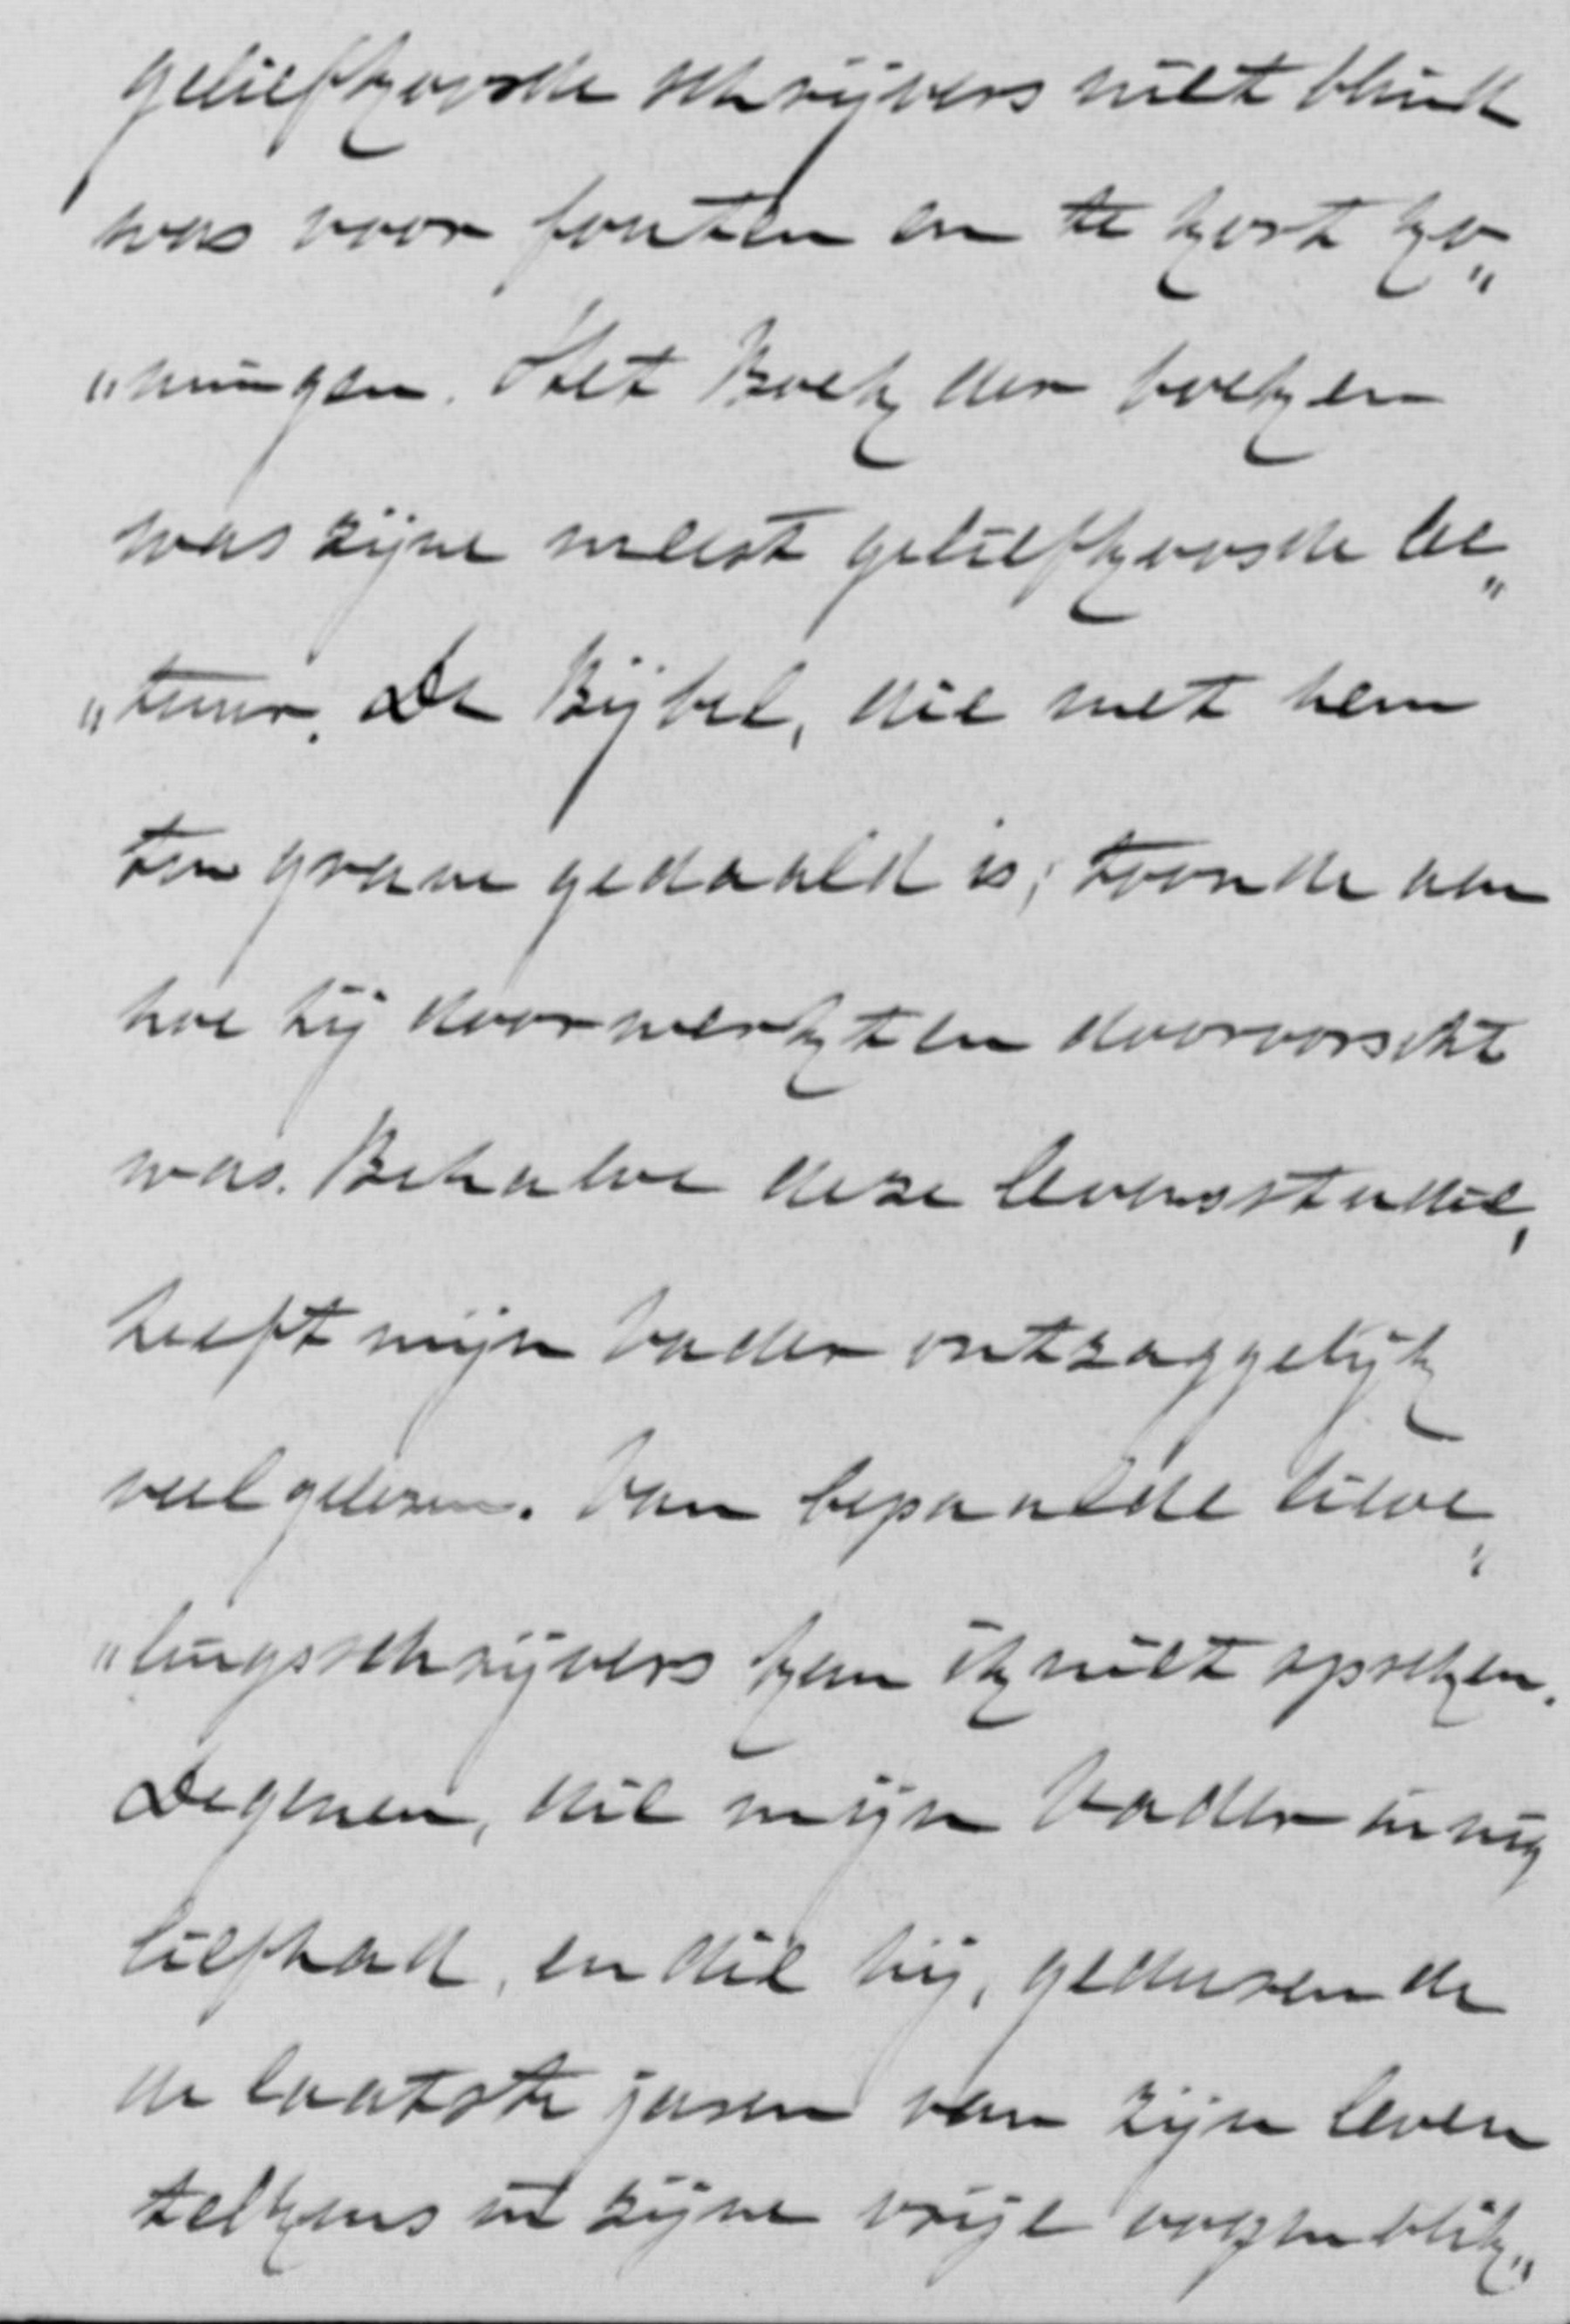 geliefkoosde schrijvers niet blind
was voor fouten en te kort ko„
„mingen. Het Boek der boeken
was zijne meest geliefkoosde lec„
„tuur. De Bijbel, die met hem
ten grave gedaald is, toonde aan
hoe hij doorwerkt en doorvorscht
was. Behalve deze levensstudie,
heeft mijn Vader ontzaggelijk
veel gelezen. Van bepaalde lieve„
„lingsschrijvers kan ik niet spreken.
Degenen, die mijn Vader innig
liefhad, en die hij, gedurende
de laatste jaren van zijn leven
telkens in zijne vrije oogenblik„